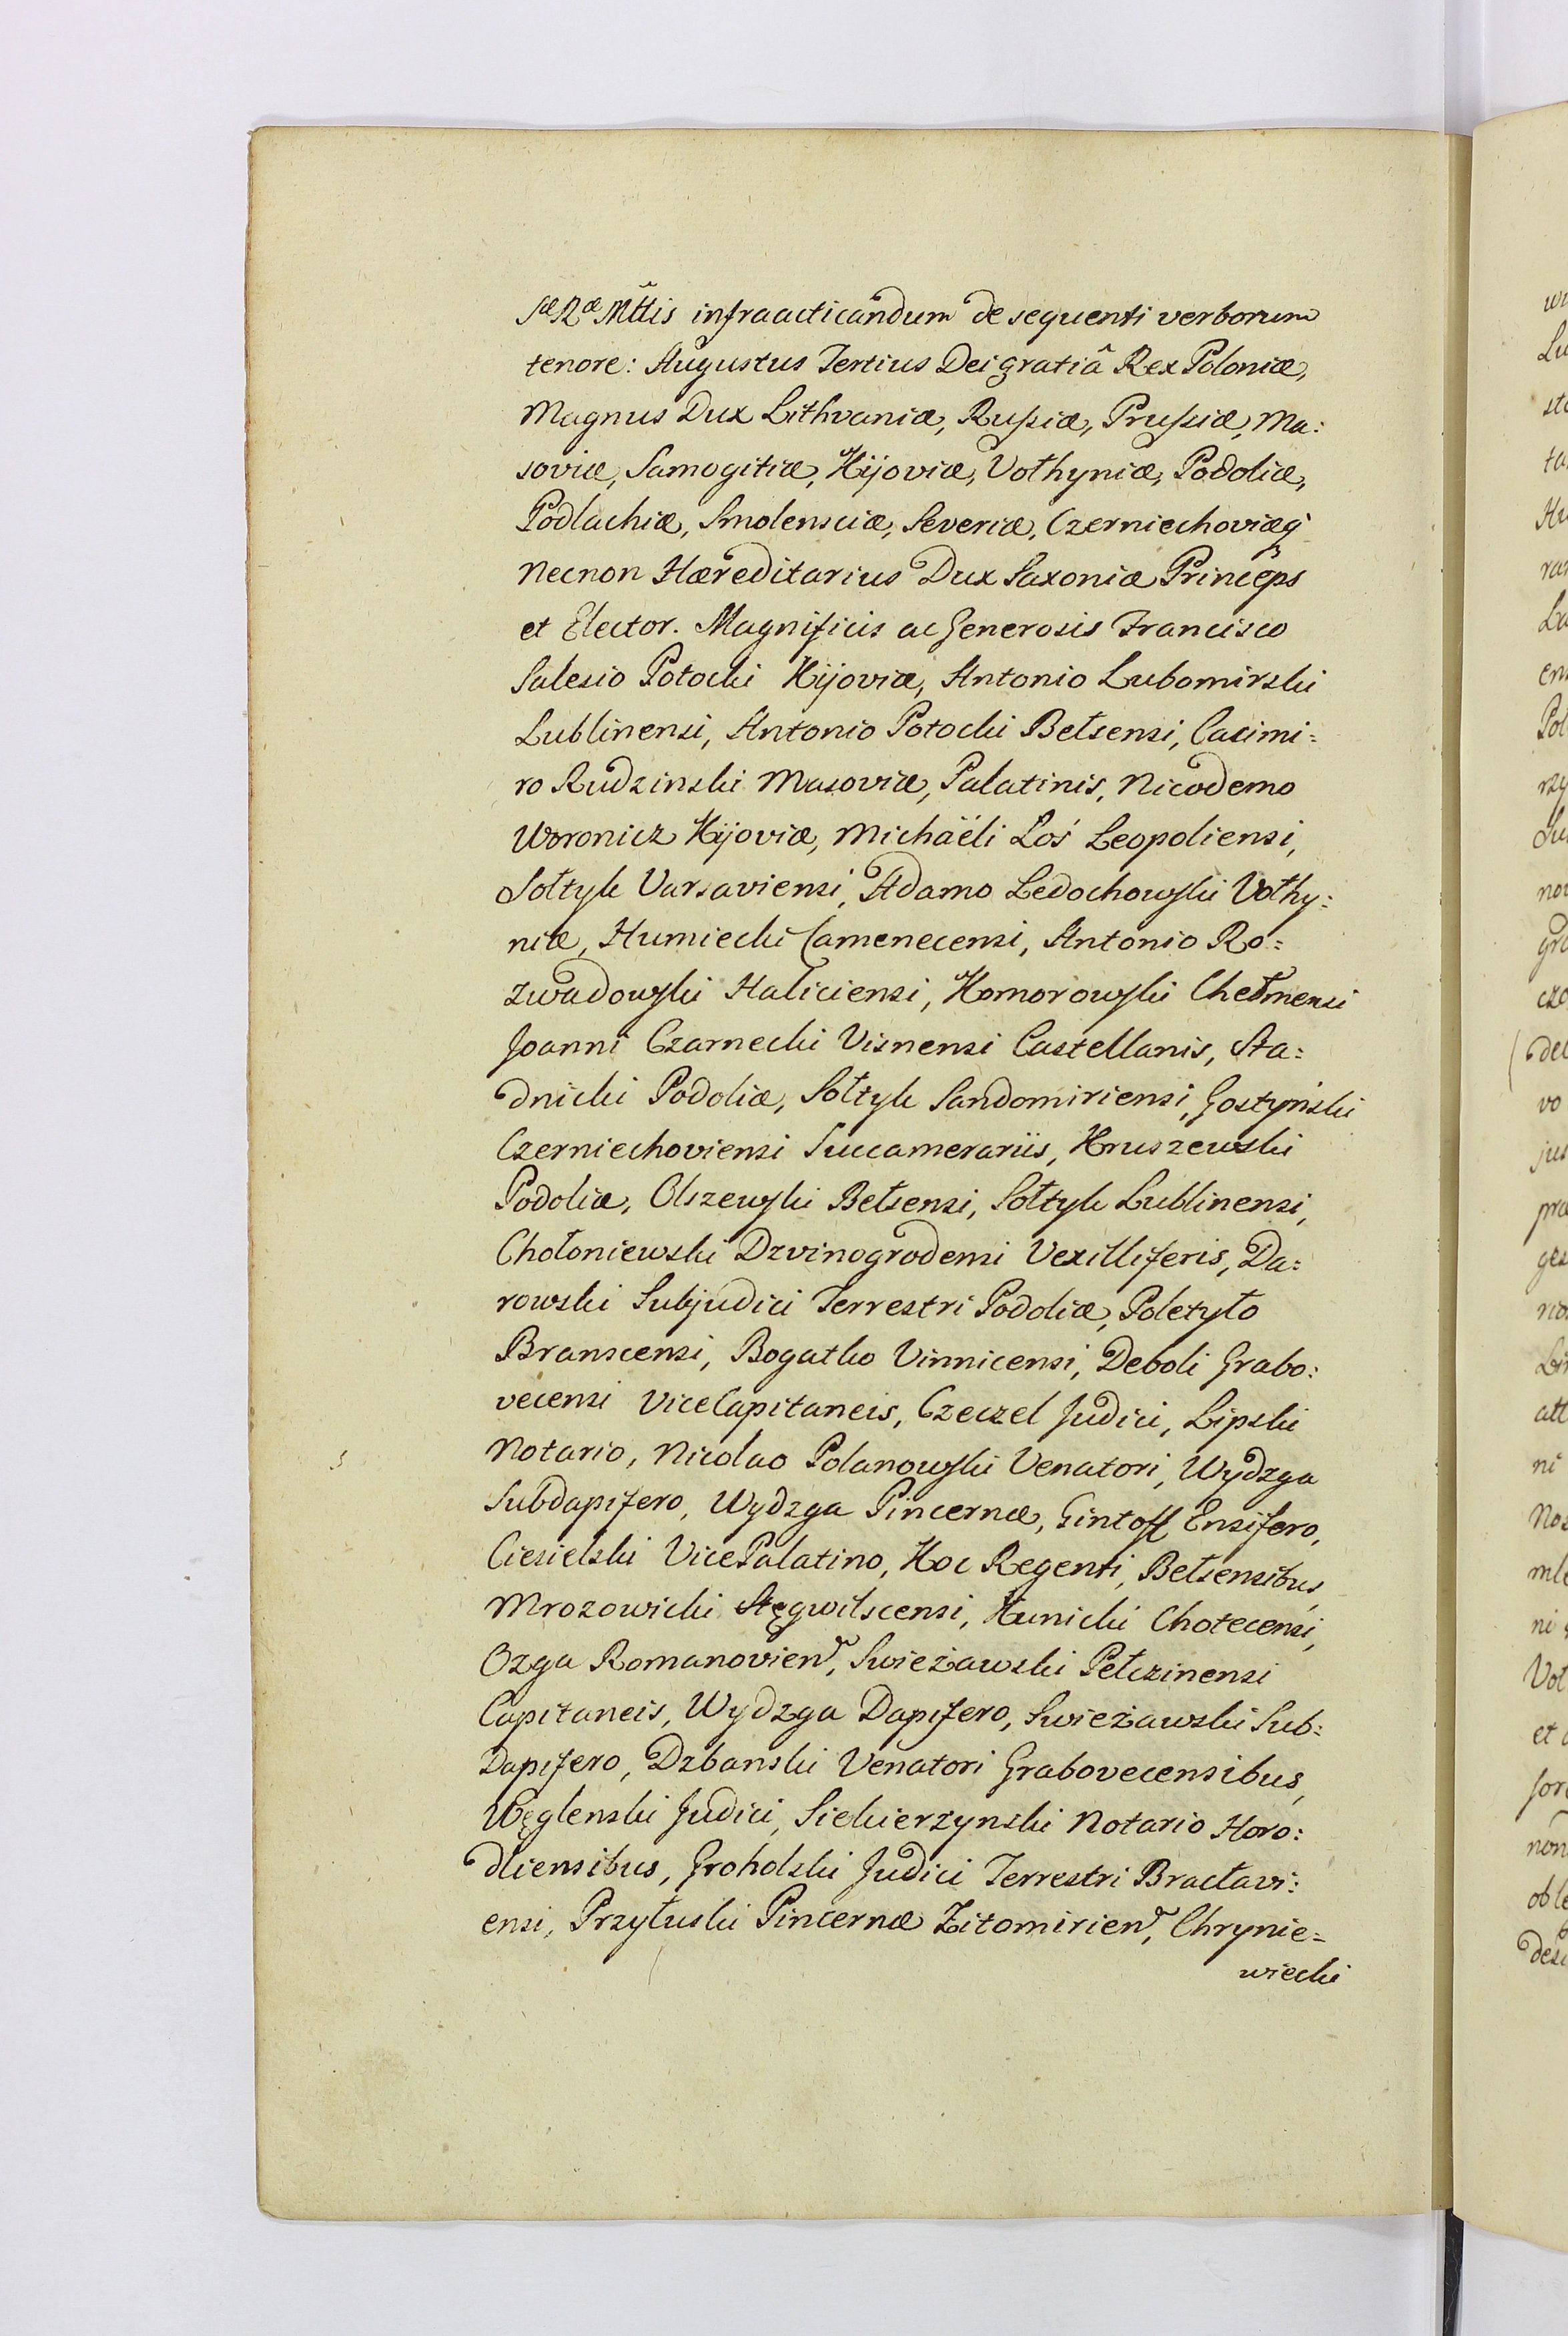 Sæ Ræ Mttis infraacticandum de sequenti verborum
tenore: Augustus Tertius Dei gratiâ Rex Poloniæ,
Magnus Dux Lithvaniæ, Russiæ, Prussiæ, Ma:
soviæ, Samogitiæ, Kijoviæ, Vołhyniæ, Podoliæ,
Podlachiæ, Smolensciæ, Severiæ, Czerniechoviæq
necnon Hæreditarius Dux Saxoniæ Princeps
et Elector. Magnificis ac Generosis Francisco
Salesio Potocki Kijoviæ, Antonio Lubomirski
Lublinensi, Antonio Potocki Bełsensi, Casimi:
ro Rudzinski Masoviæ, Palatinis, Nicodemo
Woronicz Kijoviæ, Michaëli Łoś Leopoliensi,
Sołtyk Varsaviensi, Adamo Ledochowski Vołhy:
niæ, Humiecki Camenecensi, Antonio Ro:
zwadowski Haliciensi, Komorowski Chełmensi
Joanni Czarnecki Visnensi Castellanis, Sta:
dnicki Podoliæ, Sołtyk Sandomiriensi, Gostyński
Czerniechoviensi Succamerariis, Hruszewski
Podoliæ, Olszewski Bełsensi, Sołtyk Lublinensi,
Chołoniewski Dzvinogrodensi Vexilliferis, Da:
rowski Subjudici Terrestri Podoliæ, Poletyło
Branscensi, Bogatko Vinnicensi, Deboli Grabo:
vecensi ViceCapitaneis, Czeczel Judici, Lipski
Notario, Nicolao Polanowski Venatori, Wydzga
Subdapifero, Wydzga Pincernæ, Gintoff Ensifero,
Ciesielski VicePalatino, Koc Regenti, Bełsensibus,
Mrozowicki Stęgwilscensi, Kunicki Chotecensi,
Ozga Romanovien, Swieżawski Pełczinensi
Capitaneis, Wydzga Dapifero, Swieżawski Sub:
Dapifero, Dzbanski Venatori Grabovecensibus,
Węglenski Judici, Siekierzynski Notario Horo:
dliensibus, Grohołski Judici Terrestri Bracłavi:
ensi, Przyłuski Pincernæ Żitomirien, Chrynie:
wiecki